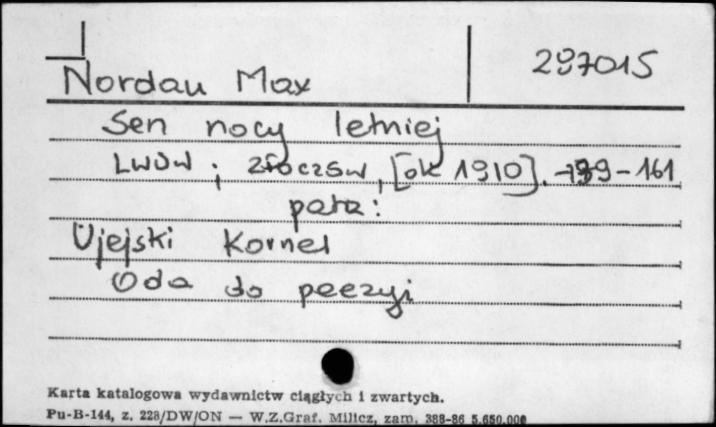 297015
Nordau Max
Sen nocy letniej
Lwów ; Złoczów, [ok 1910]. 139-161
patz:
Ujejski Kornel
Oda do poezyi
Karta katalogowa wydawnictw ciągłych i zwartych.
Pu-B-144, z. 228/DW/ON — W.Z.Graf. Milicz, zam. 388-86 5.650.000